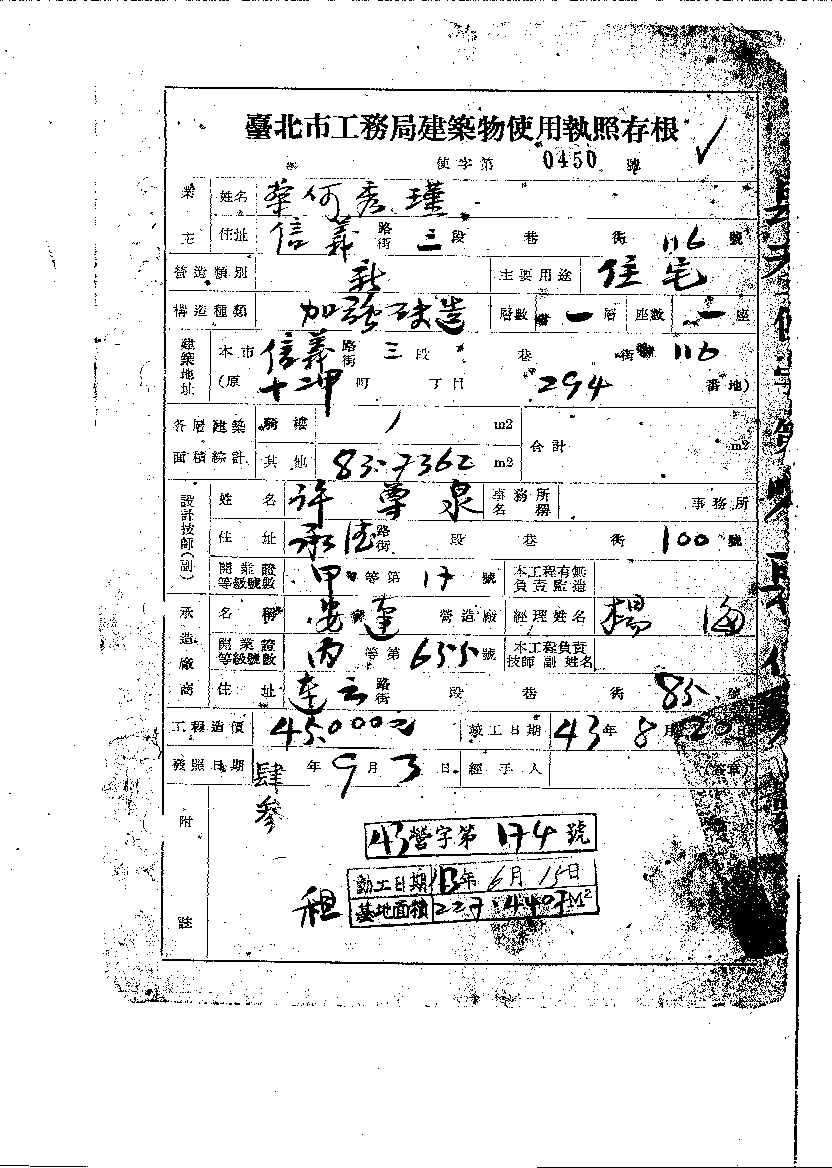 臺北市工務局建築物使用執照存根
使字第 0450 號
業主 姓名 華何秀瑾
住址 信義 路街 三段 巷 街 116 號
營造類別 新 主要用途 住宅
構造種類 加強磚造 層數 一層 座數 一座
建築地址 本市 信義 路街 三段 巷 街 116
(原 十二甲 町 丁目 294 番地)
各層建築面積綜計 騎樓 / m2 合計 m2
其他 83.7362 m2
設計技師(副) 姓名 許尊泉 事務所名稱 事務所
住址 承德 路街 段 巷 街 100 號
開業證等級號數 甲 等第 17 號 本工程有無負責監造
承造廠商 名稱 安達 營造廠 經理姓名 楊海
開業證等級號數 丙 等第 655 號 本工程負責技師副姓名
住址 連云 路街 段 巷 街 85 號
工程造價 45,000元 竣工日期 43年8月20日
發照日期 肆參 年9月3日 經手人 (簽章)
附註
43營字第 174 號
動工日期 43年6月15日
租 基地面積 227.4407M²